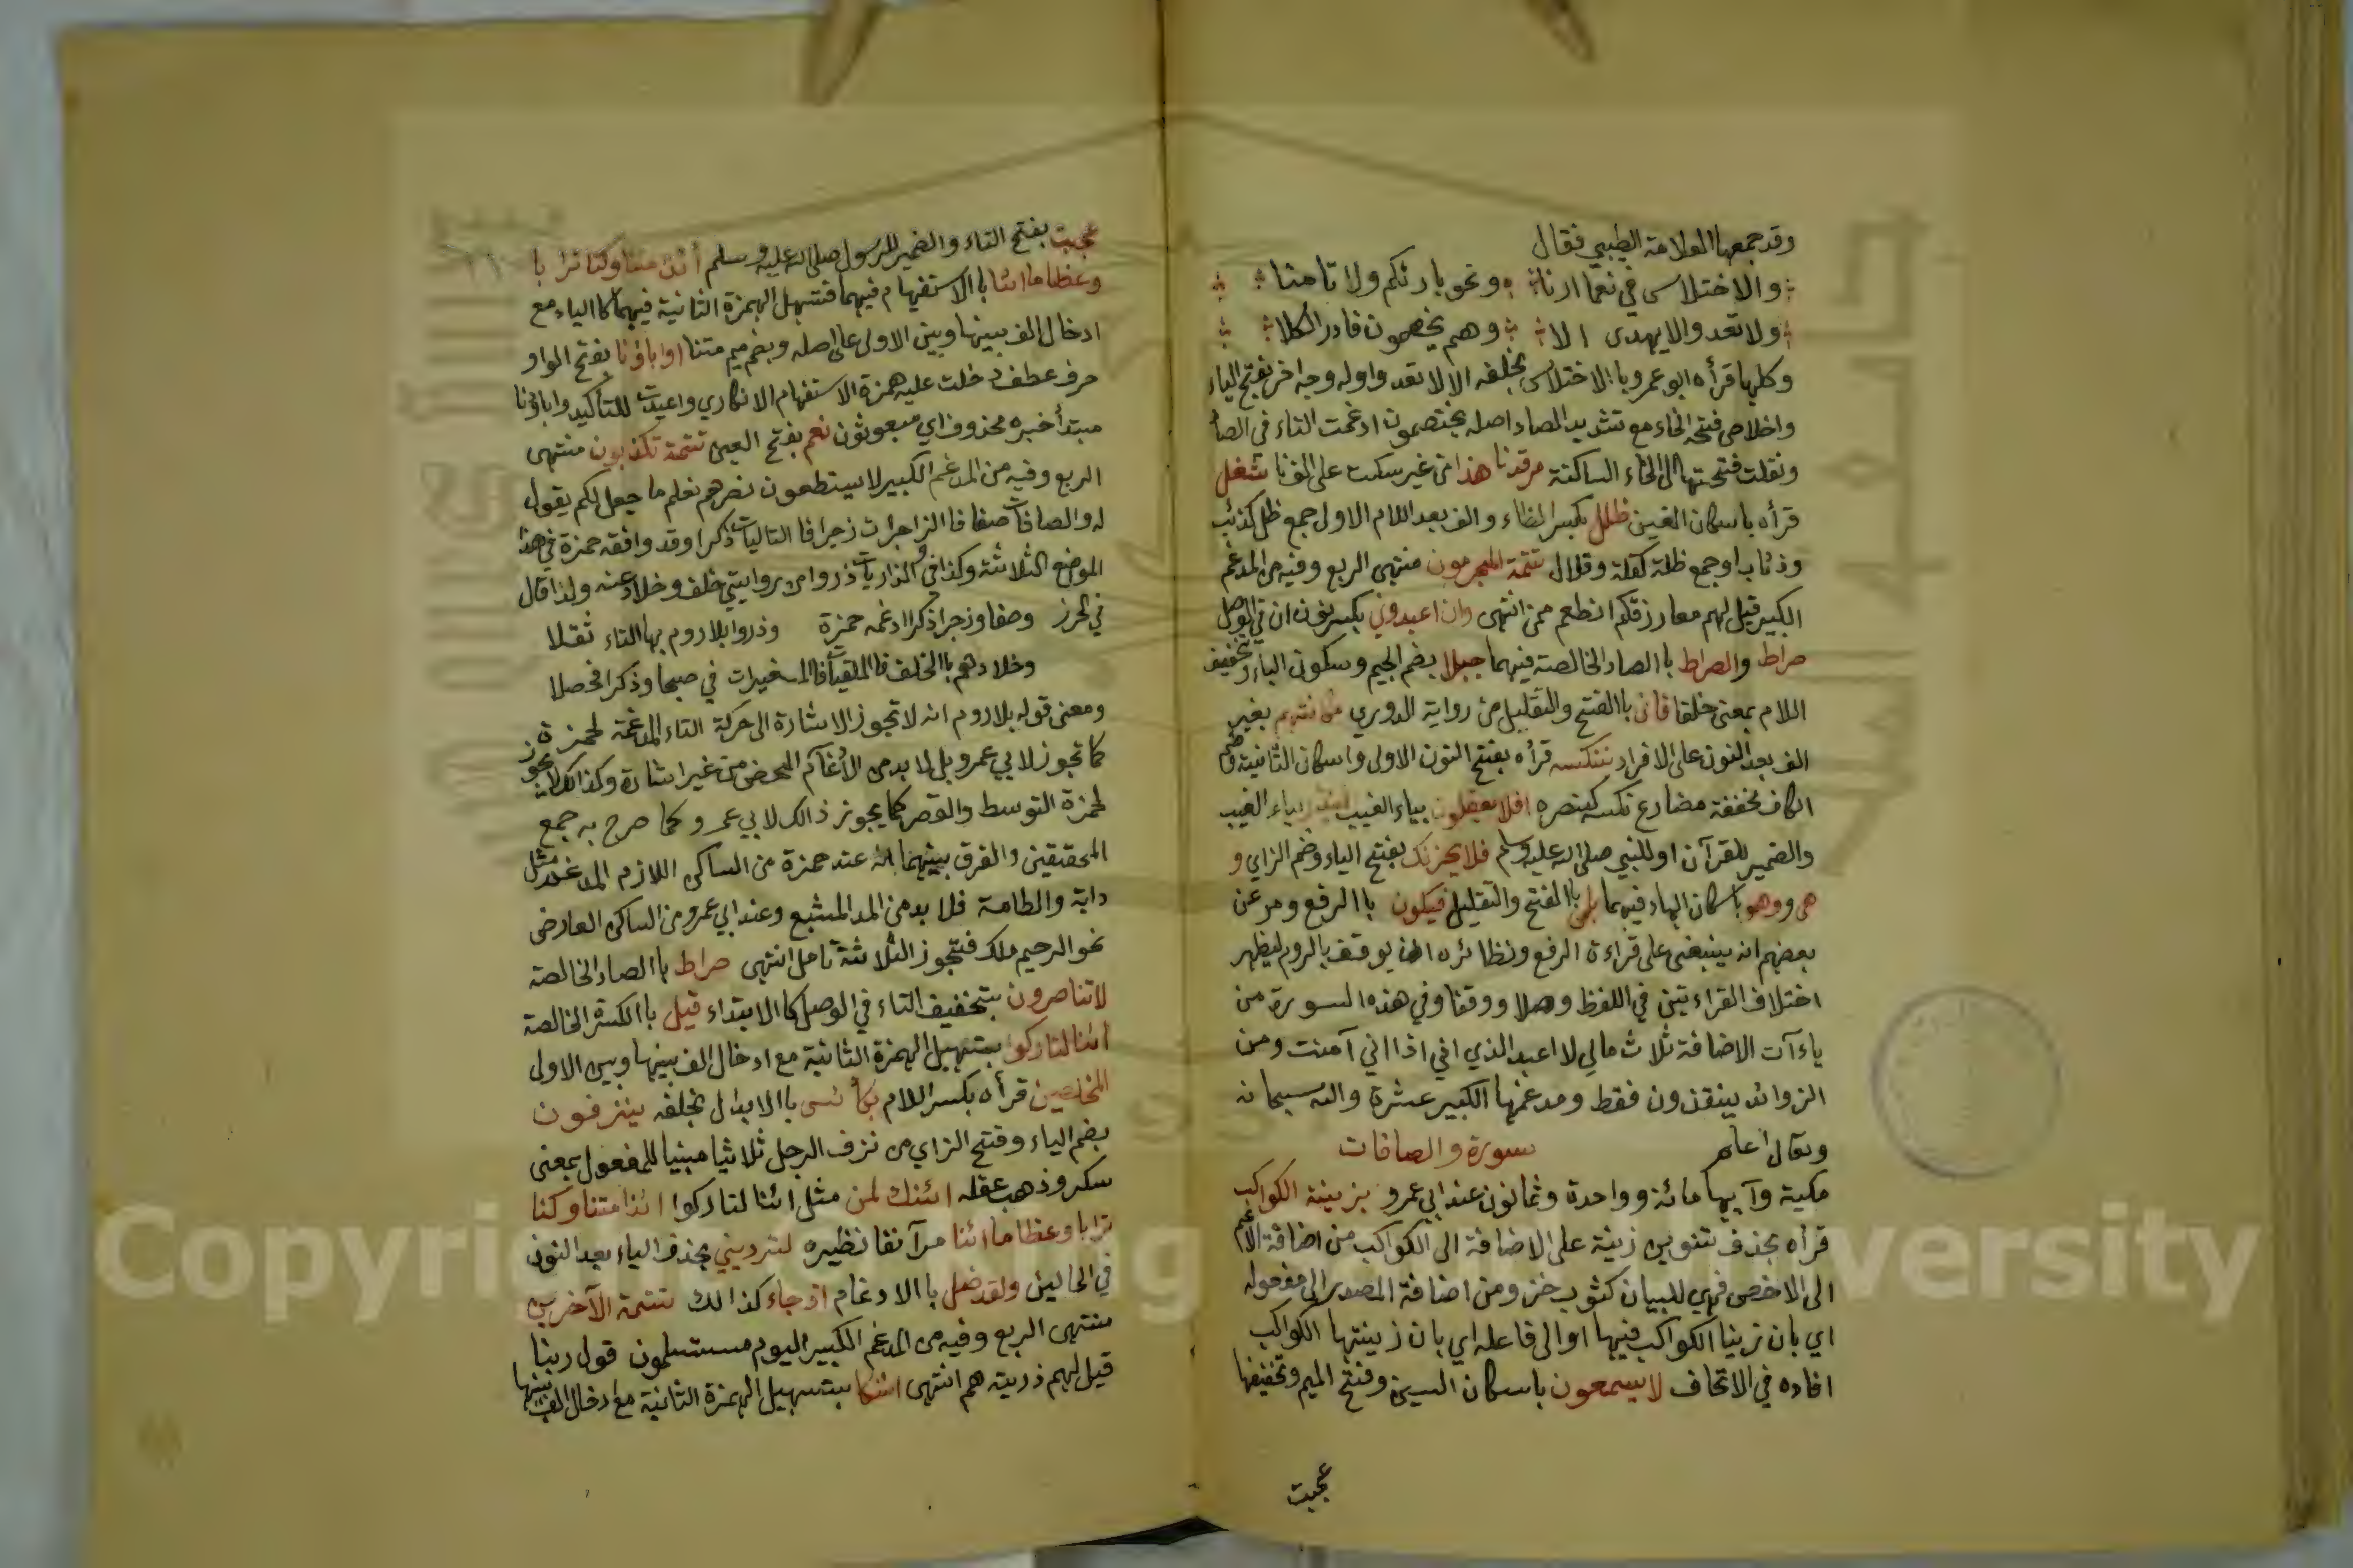 وقد جمعها العلامة الطيبي فقال
والاختلاس في نعما ارنا ونحو بارئكم ولا تامنا
ولا تعدوا لا يهدى الا وهم يخصمون فادر الكلا
وكلها قرأه ابو عمرو باالاختلاس بخلفه الا لا تعدوا وله وجه اخر بفتح الياء
واخلاص فتحة الخاء مع تشديد الصاد اصله يختصمون ادغمت التاء في الصاد
ونقلت فتحتها الى الخاء الساكنة مرقدنا هذا من غير سكت على الفنا شغل
قرأه باسكان الغين ظلل بكسر الظاء والف بعد اللام الاولى جمع ظل كذئب
وذئاب او جمع ظلة كقلة وقلال تتمة المجرمون منتهى الربع وفيه من المدغم
الكبير قيل لهم معا رزقكم انطعم من انتهى وان اعبدوني بكسر نون ان في الوصل
صراط والصراط باالصاد الخالصة فيهما جبلا بضم الجيم وسكون الباء وتخفيف
اللام بمعنى خلقا فانى باالفتح والتقليل من رواية الدوري مكانتهم بغير
الف بعد النون على الافراد ننكسه قرأه بفتح النون الاولى واسكان الثانية وضم
الكاف مخففة مضارع نكسه كينصره افلا يعقلون بياء الغيب لينذر بياء الغيب
والضمير للقرآن او للنبي صلى الله عليه وسلم فلا يحزنك بفتح الياء وضم الزاي و
هي ووهو باسكان الهاء فيهما بلى باالفتح والتقليل فيكون باالرفع ومر عن
بعضهم انه ينبغي على قراءة الرفع ونظائره ان يوقف بالروم ليظهر
اختلاف القراءتين في اللفظ وصلا ووقفا وفي هذه السورة من
ياءآت الاضافة ثلاث مالي لا اعبد الذي اني اذا اني آمنت ومن
الزوائد ينقذون فقط ومدغمها الكبير عشرة والله سبحانه
وتعال اعلم سورة والصافات
مكية وآيها مائة وواحدة وثمانون عند ابي عمرو بزينة الكواكب
قرأه بحذف تنوين زينة على الاضافة الى الكواكب من اضافة الاعم
الى الاخص فهي للبيان كثوب خز ومن اضافة المصدر الى مفعوله
اي بان زينا الكواكب فيها او الى فاعله اي بان زينتها الكواكب
افاده في الاتحاف لا يسمعون باسكان السين وفتح الميم وتخفيفها
عجبت
عجبت بفتح التاء والضمير للرسول صلى الله عليه وسلم أئذا متنا وكنا ترابا
وعظاما ائنا باالاستفهام فيهما فتسهيل الهمزة الثانية فيهما كالياء مع
ادخال الف بينها وبين الاولى على اصله وبضم ميم متنا اواباؤنا بفتح الواو
حرف عطف دخلت عليه همزة الاستفهام الانكاري واعيدت للتأكيد واباؤنا
مبتدأ خبره محذوف اي مبعوثون نعم بفتح العين تتمة تكذبون منتهى
الربع وفيه من المدغم الكبير لا يستطعون نصرهم نعلم ما جعل لكم يقول
له والصافات صفا فاالزاجرات زجرا فا التاليات ذكرا وقد وافقه حمزة في هذا
الموضع الثلاثة وكذا في والذاريات ذروا من روايتي خلف وخلاد عنه ولذا قال
في الحرز وصفا وزجرا ذكرا ادغمه حمزة وذروا بلا روم بها التاء ثقلا
وخلادهم باالخلف فا الملقيات فا المغيرات في صبحا وذكرا فحصلا
ومعنى قوله بلا روم انه لا تجوز الاشارة الى حركة التاء المدغمة لحمزة
كما تجوز لابي عمرو بل لا بد من الادغام المحض من غير اشارة وكذالك لا يجوز
لحمزة التوسط والقصر كما يجوز ذالك لابي عمرو كما صرح به جمع
المحققين والفرق بينهما انه عند حمزة من الساكن اللازم المدغم مثل
دابة والطامة فلا بد من المد المشبع وعند ابي عمرو من الساكن العارض
نحو الرحيم ملك فتجوز الثلاثة تامل انتهى صراط باالصاد الخالصة
لا تناصرون بتخفيف التاء في الوصل كا الابتداء قيل باالكسرة الخالصة
ائنا لتاركوا بتسهيل الهمزة الثانية مع ادخال الف بينها وبين الاولى
المخلصين قرأه بكسر اللام بكأس باالابدال بخلفه ينزفون
بضم الياء وفتح الزاي من نزف الرجل ثلاثيا مبنيا للمفعول بمعنى
سكر وذهب عقله ائنك لمن مثل ائنا لتاركوا ائذا متنا وكنا
ترابا وعظاما ائنا مر آنفا نظيره لترديني بحذف الياء بعد النون
في الحالين ولقد ضل باالادغام اذ جاء كذالك تتمة الآخرين
منتهى الربع وفيه من المدغم الكبير اليوم مستسلمون قول ربنا
قيل لهم ذريته هم انتهى ائفكا بتسهيل الهمزة الثانية مع ادخال الف بينها